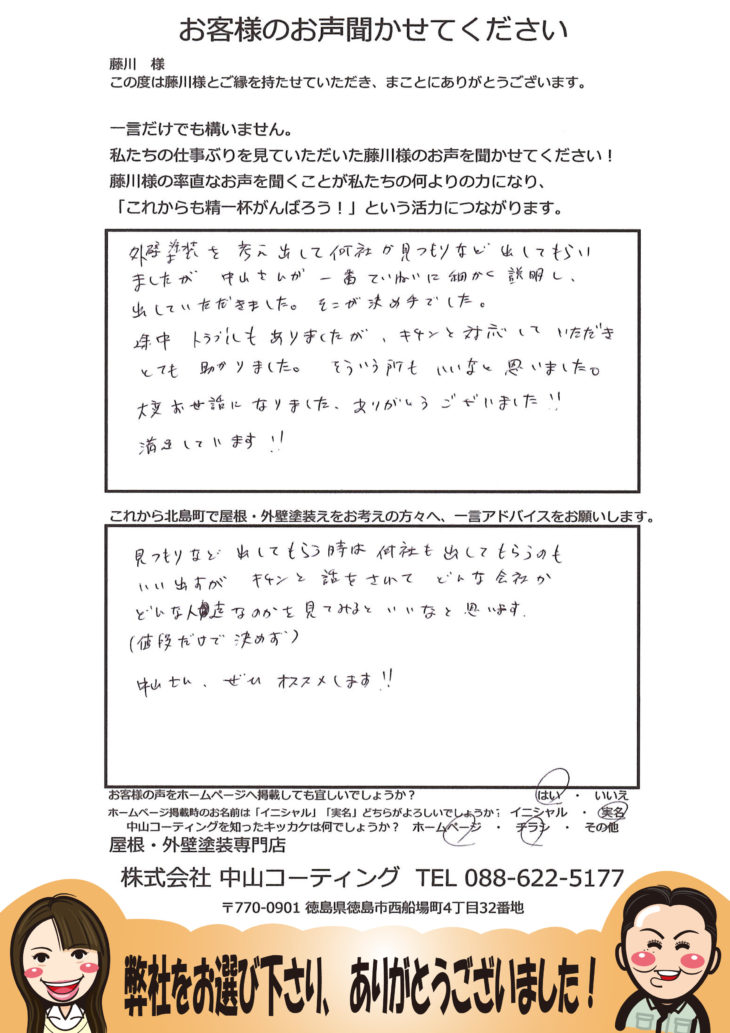 お客様のお声聞かせてください
藤川　様
この度は藤川様とご縁を持たせていただき、まことにありがとうございます。
一言だけでも構いません。
私たちの仕事ぶりを見ていただいた藤川様のお声を聞かせてください！
藤川様の率直なお声を聞くことが私たちの何よりの力になり、
「これからも精一杯がんばろう！」という活力につながります。
外壁塗装を考え出して何社か見つもりなど出してもらい
ましたが 中山さんが一番ていねいに細かく説明し、
出していただきました。そこが決め手でした。
途中トラブルもありましたが、キチンと対応していただき
とても助かりました。そういう所もいいなと思いました。
大変お世話になりました、ありがとうございました!!
満足しています!!
これから北島町で屋根・外壁塗装えをお考えの方々へ、一言アドバイスをお願いします。
見つもりなど出してもらう時は何社も出してもらうのも
いい出すが キチンと話をされて どんな会社か
どんな人達なのかを見てみるといいなと思います.
(値段だけで決めず)
中山さん、ぜひオススメします!!
お客様の声をホームページへ掲載しても宜しいでしょうか？　はい　・　いいえ
ホームページ掲載時のお名前は「イニシャル」「実名」どちらがよろしいでしょうか？　イニシャル　・　実名
中山コーティングを知ったキッカケは何でしょうか？　ホームページ　・　チラシ　・　その他
屋根・外壁塗装専門店
株式会社 中山コーティング　TEL 088-622-5177
〒770-0901 徳島県徳島市西船場町4丁目32番地
弊社をお選び下さり、ありがとうございました！